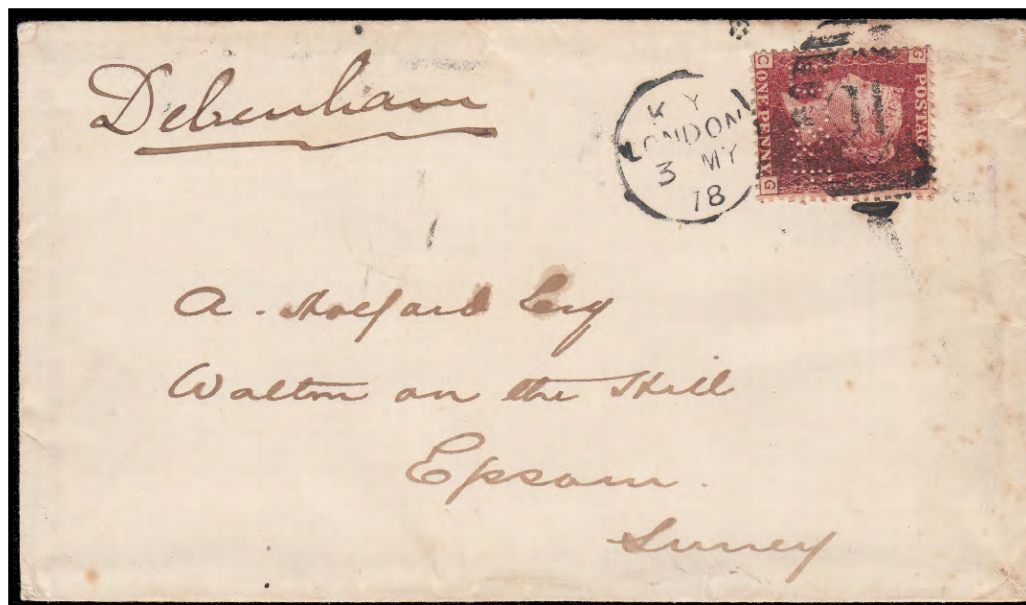 Debenham
K Y
LONDON
3 MY
78
G POSTAGE
11
C ONE PENNY G
A. Holford Esq
Walton on the Hill
Epsom.
Surrey